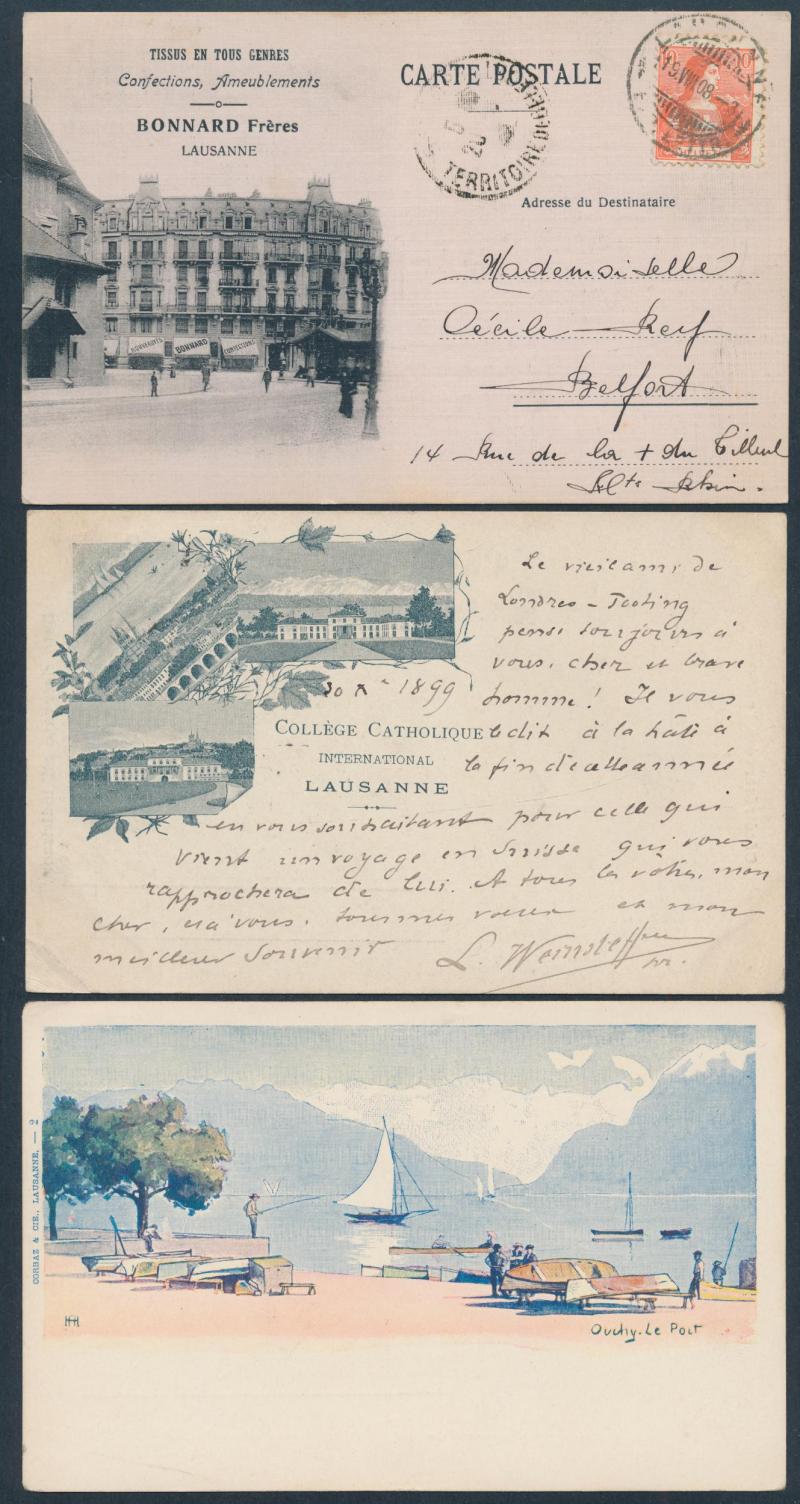 TISSUS EN TOUS GENRES
Confections, Ameublements
BONNARD Frères
LAUSANNE
CARTE POSTALE
LAUSANNE
19.VIII.08
TERRITOIRE DE BELFORT
Adresse du Destinataire
NOUVEAUTÉS BONNARD CONFECTIONS
Mademoiselle
Cécile
Belfort
14 Rue de la + du Tilleul
Ht Rhin.
Le vieil ami de
Londres - Tooting
pense toujours à
vous, cher et brave
30 Xre 1899
homme! Il vous
COLLÈGE CATHOLIQUE
le dit à la hâte à
INTERNATIONAL
la fin de cette année
LAUSANNE
en vous souhaitant pour celle qui
vient un voyage en Suisse qui vous
rapprochera de lui. A tous les vôtres, mon
cher, et à vous, tous mes vœux et mon
meilleur souvenir
L.
CORBAZ & CIE., LAUSANNE. — 2
Ouchy. Le Port